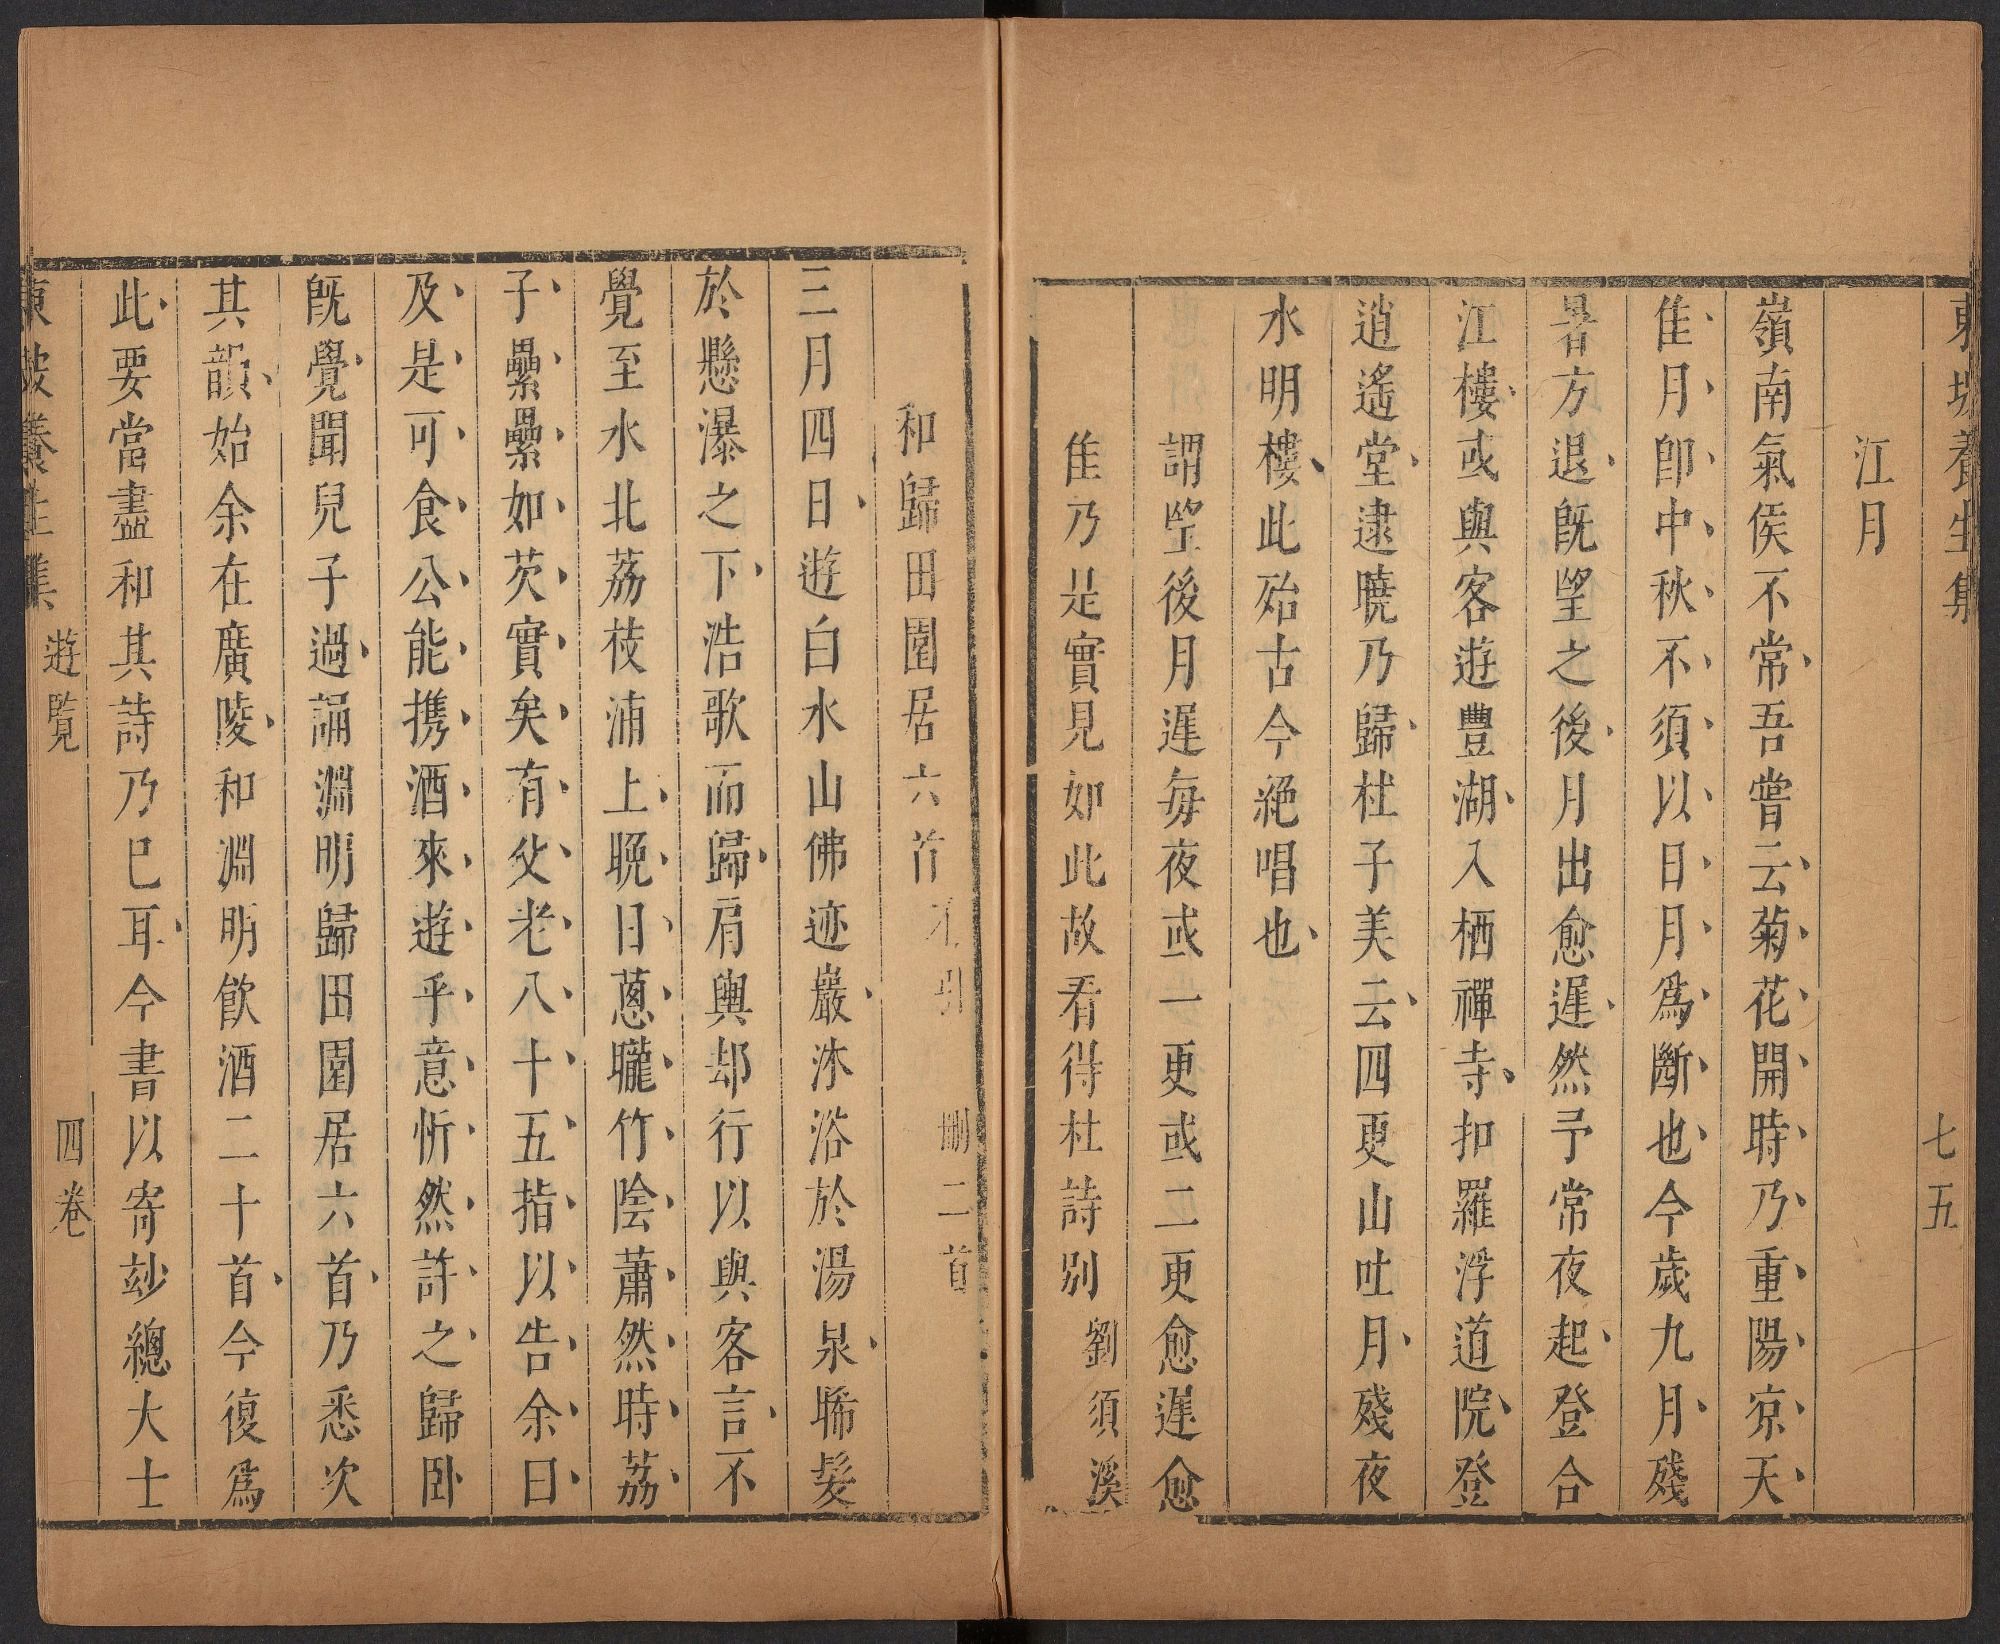 東坡養生集
七五
江月
嶺南氣侯不常吾嘗云菊花開時乃重陽凉天
佳月卽中秋不須以日月爲斷也今歲九月殘
暑方退旣望之後月出愈遲然予常夜起登合
江樓或與客遊豐湖入栖禪寺扣羅浮道院登
逍遙堂逮曉乃歸杜子美云四更山吐月殘夜
水明樓此殆古今絕唱也
謂望後月遲每夜或一更或二更愈遲愈
佳乃是實見如此故看得杜詩別 劉須溪
和歸田園居六首 引 刪二首
三月四日遊白水山佛迹巖沐浴於湯泉晞髮
於懸瀑之下浩歌而歸肩輿却行以與客言不
覺至水北荔枝浦上晚日蔥曨竹陰蕭然時荔
子纍纍如芡實矣有父老八十五指以告余曰
及是可食公能携酒來遊乎意忻然許之歸卧
旣覺聞兒子過誦淵明歸田園居六首乃悉次
其韻始余在廣陵和淵明飮酒二十首今復爲
此要當盡和其詩乃巳耳今書以寄玅總大士
東坡養生集 遊覽
四卷